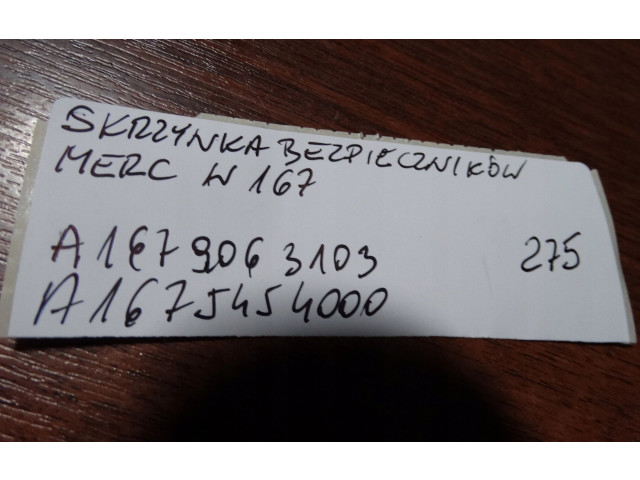 SKRZYNKA BEZPIECZNIKÓW
MERC W 167
A 167 906 3103 275
A 167 545 4000